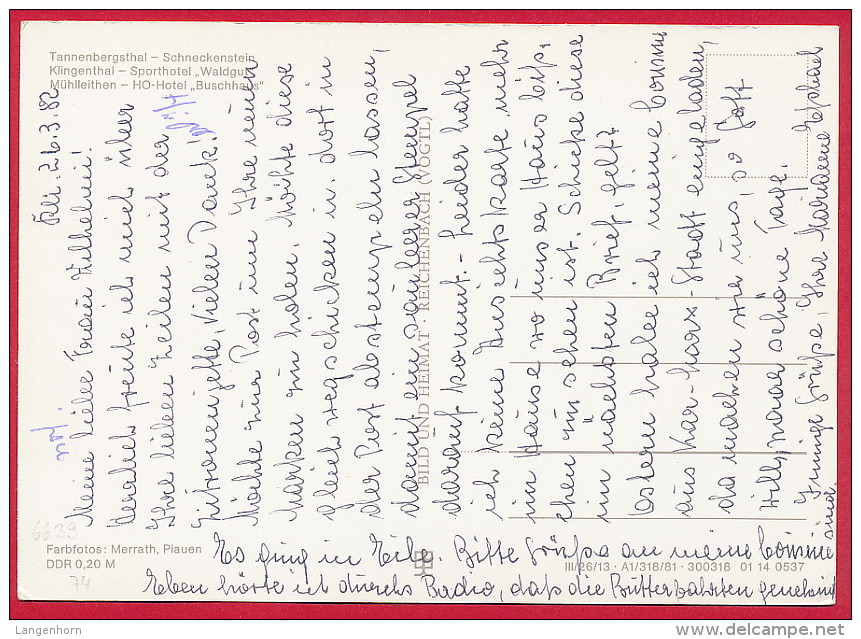 Tannenbergsthal – Schneckenstein
Klingenthal – Sporthotel „Waldgut“
Mühlleithen – HO-Hotel „Buschhaus“
26.3.82
Meine liebe Frau Wilhelmi!
Herzlich freute ich mich über
Ihre lieben Zeilen mit der
Zitronenjette, vielen Dank!
Möchte zur Post um Ihre neuen
Marken zu holen. Möchte diese
gleich wegschicken u. dort in
der Post abstempeln lassen,
damit ein sauberer Stempel
darauf kommt. – Leider hatte
ich keine Ansichtskarte mehr
im Hause wo unser Haus biß,
chen zu sehen ist. Schicke diese
im nächsten Brief, gelt?
Ostern habe ich meine Cousine
aus Kar-Marx-Stadt eingeladen,
da machen wir uns, so Gott
will, paar schöne Tage.
Innige Grüße, Ihre Marianne
BILD UND HEIMAT · REICHENBACH (VOGTL)
6639
Farbfotos: Merrath, Plauen
DDR 0,20 M
74
III/26/13 · A1/318/81 · 300318 01 14 0537
Es ging in Eile. Bitte Grüße an meine Cousine
Eben hörte ich durchs Radio, daß die Butterfahrten genehmigt
sind.
Langenhorn
delcampe.net